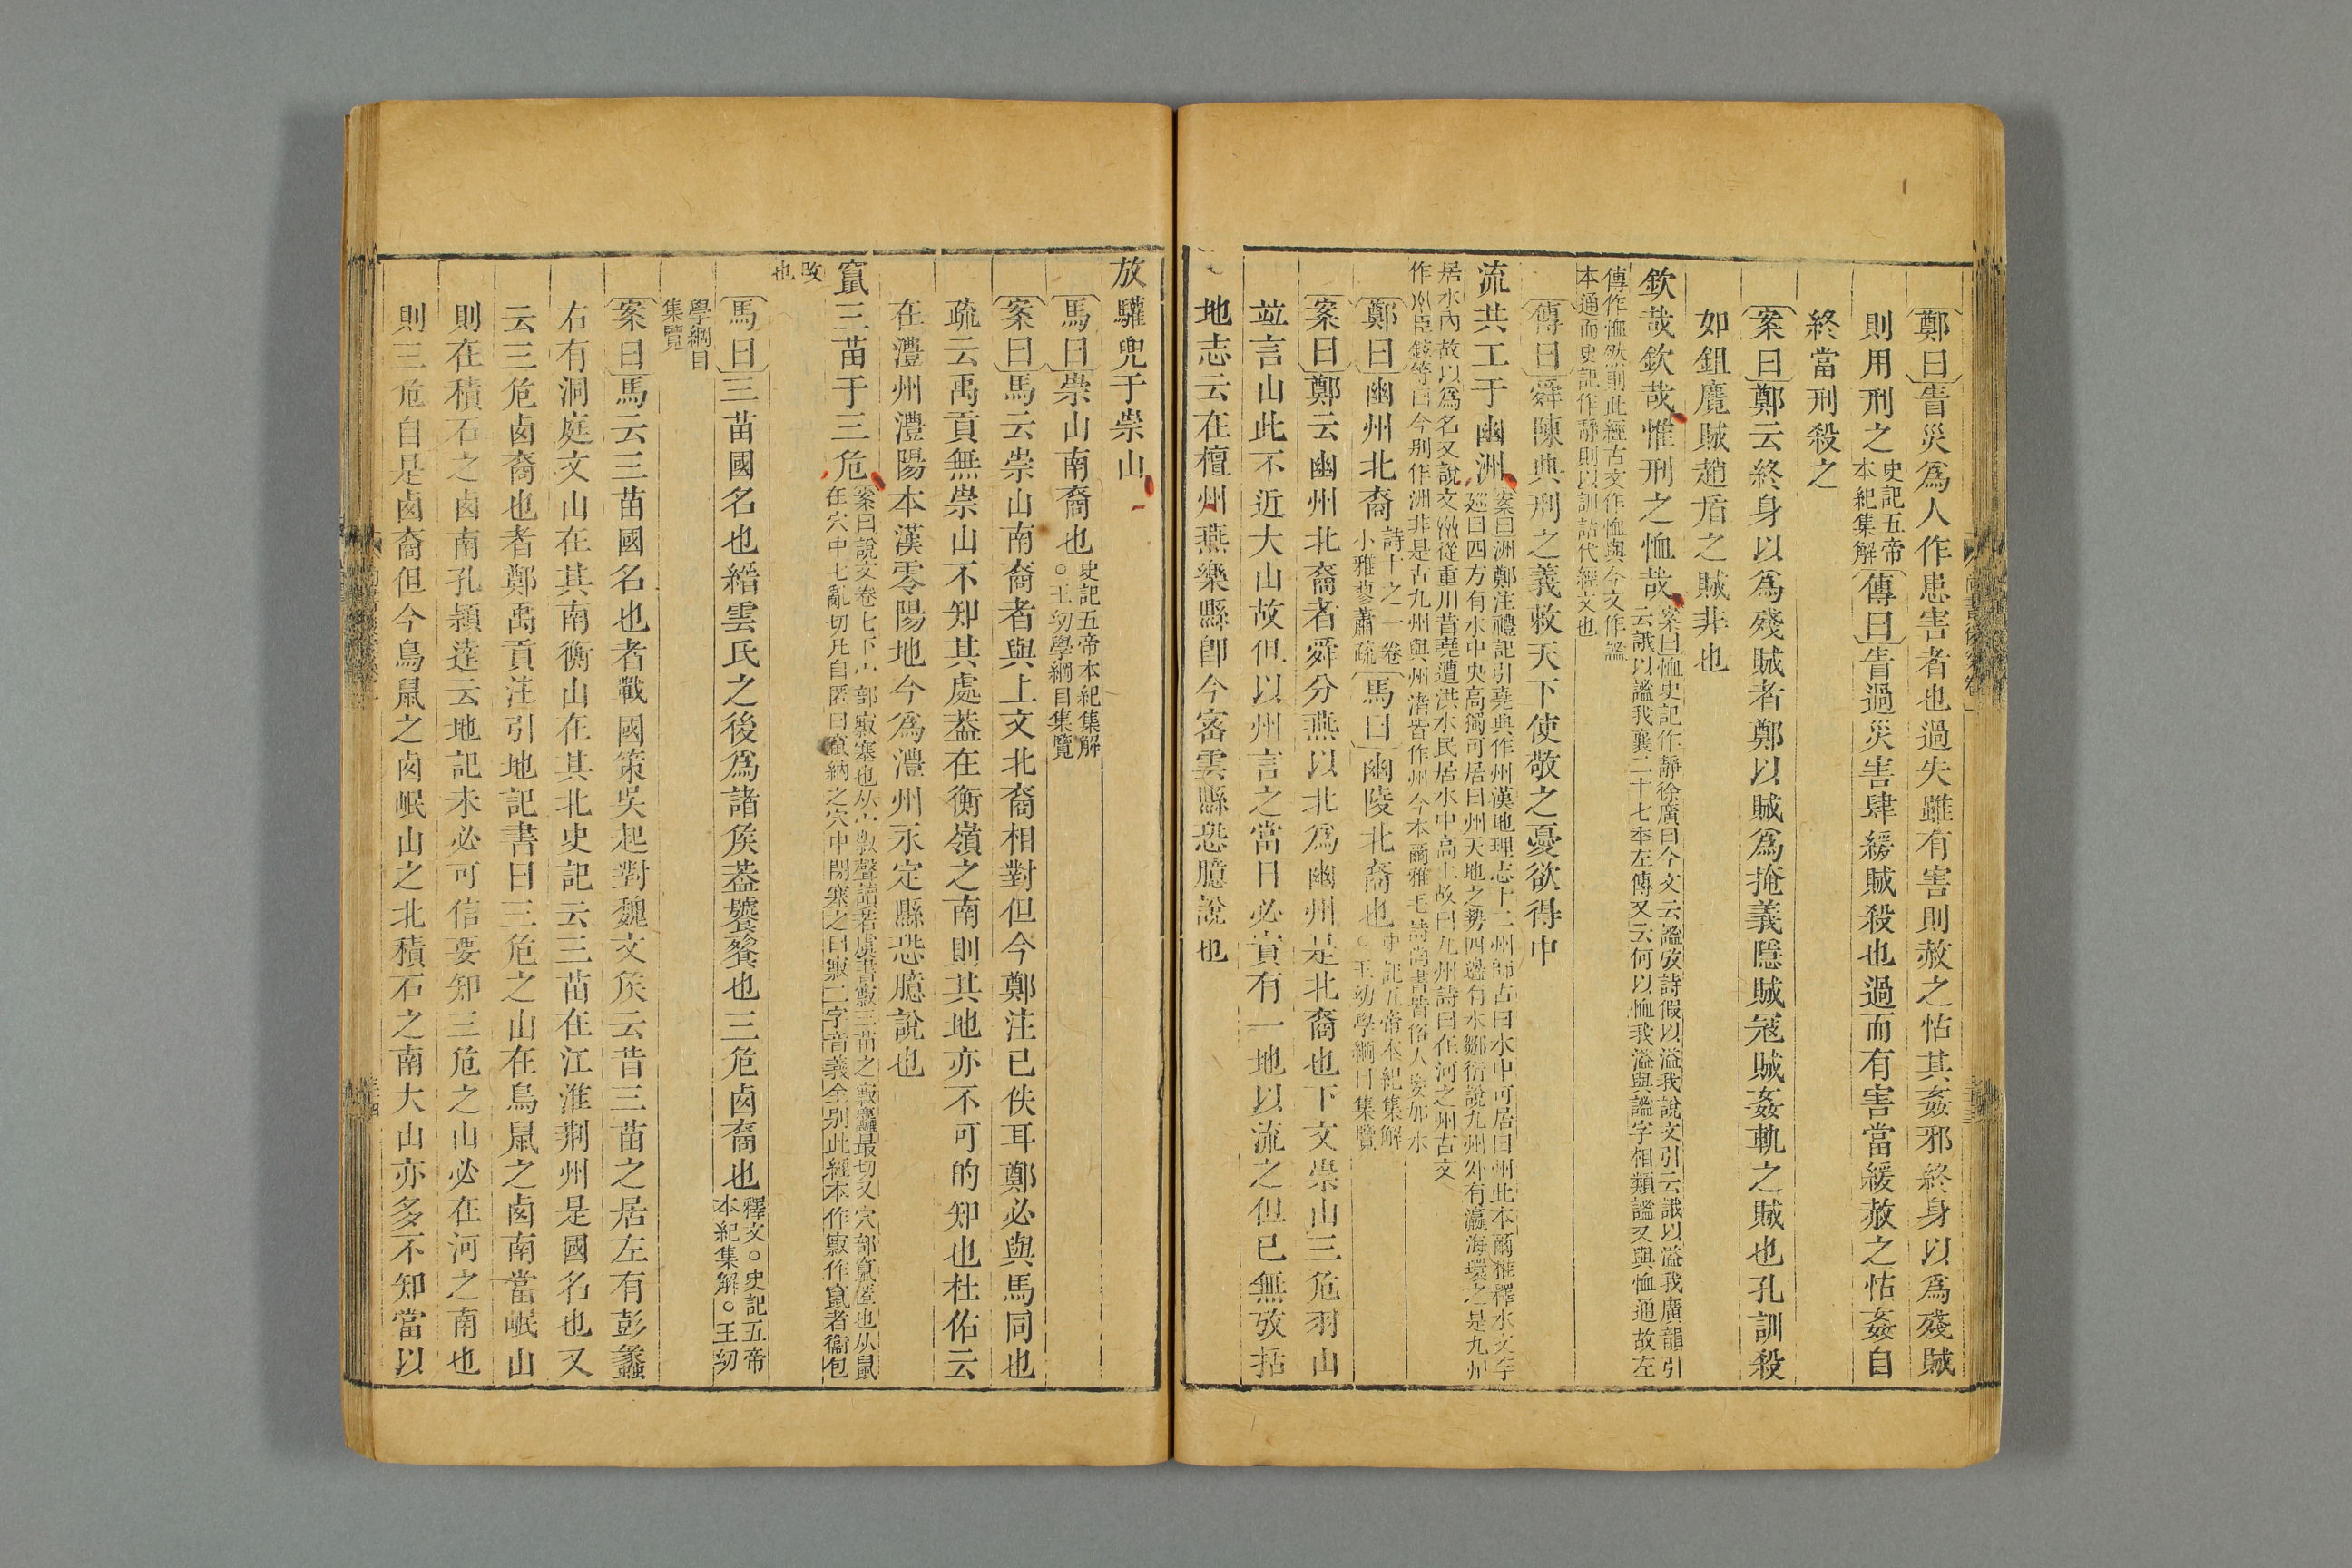 鄭曰眚災爲人作患害者也過失雖有害則赦之怙其姦邪終身以爲殘賊
則用刑之史記五帝本紀集解傳曰眚過災害肆緩賊殺也過而有害當緩赦之怙姦自
終當刑殺之
案曰鄭云終身以爲殘賊者鄭以賊爲掩義隱賊冦賊姦軌之賊也孔訓殺
如鉏麑賊趙盾之賊非也
欽哉欽哉惟刑之恤哉案曰恤史記作靜徐廣曰今文云謐攷詩假以溢我說文引云誐以溢我廣韻引
云誐以謐我襄二十七年左傳又云何以恤我溢與謐字相類謐又與恤通故左
傳作恤然則此經古文作恤與今文作謐
本通而史記作靜則以訓詁代經文也
傳曰舜陳典刑之義敕天下使敬之憂欲得中
流共工于幽洲案曰洲鄭注禮記引堯典作州漢地理志十二州師古曰水中可居曰州此本爾雅釋水文李
廵曰四方有水中央高獨可居曰州天地之勢四邊有水鄒衍說九州外有瀛海環之是九州
居水內故以爲名又說文𡿧從重川昔堯遭洪水民居水中高土故曰九州詩曰在河之州古文
作𡿧臣鉉等曰今别作洲非是古九州與州渚皆作州今本爾雅毛詩尚書皆俗人妄加水
鄭曰幽州北裔詩十之一卷小雅蓼蕭疏馬曰幽陵北裔也史記五帝本紀集解○王幼學綱目集覽
案曰鄭云幽州北裔者舜分燕以北爲幽州是北裔也下文崇山三危羽山
竝言山此不近大山故但以州言之當日必實有一地以流之但已無攷括
地志云在檀州燕樂縣卽今密雲縣恐臆說也
放驩兜于崇山
馬曰崇山南裔也史記五帝本紀集解○王幼學綱目集覽
案曰馬云崇山南裔者與上文北裔相對但今鄭注已佚耳鄭必與馬同也
疏云禹貢無崇山不知其處葢在衡嶺之南則其地亦不可的知也杜佑云
在澧州澧陽本漢零陽地今爲澧州永定縣恐臆說也
竄三苗于三危案曰說文卷七下宀部㝮塞也从宀㪔聲讀若虞書㝮三苗之㝮麤最切又穴部竄匿也从鼠
在穴中七亂切凡自匿曰竄納之穴中閉塞之曰㝮二字音義全别此經本作㝮作竄者衞包
改也
馬曰三苗國名也縉雲氏之後爲諸矦葢饕餮也三危卤裔也釋文○史記五帝本紀集解○王幼
學綱目集覽
案曰馬云三苗國名也者戰國策吳起對魏文矦云昔三苗之居左有彭蠡
右有洞庭文山在其南衡山在其北史記云三苗在江淮荆州是國名也又
云三危卤裔也者鄭禹貢注引地記書曰三危之山在鳥鼠之卤南當岷山
則在積石之卤南孔穎達云地記未必可信要知三危之山必在河之南也
則三危自是卤裔但今鳥鼠之卤岷山之北積石之南大山亦多不知當以